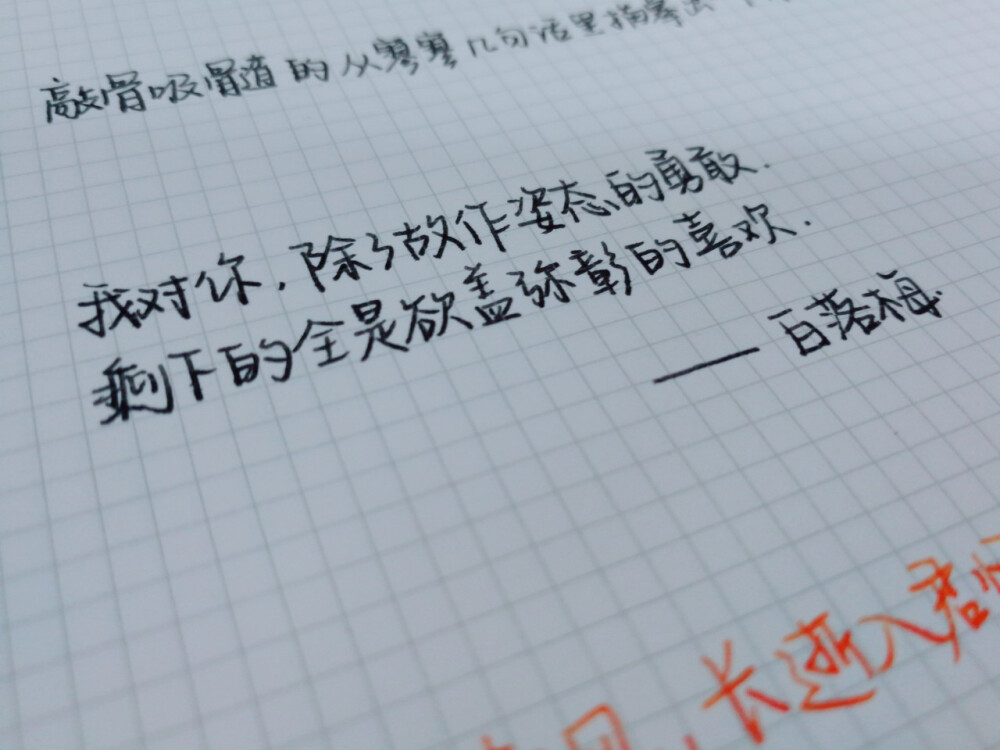 敲骨吸髓道的从寥寥几句话里揣摩出
我对你，除了故作姿态的勇敢.
剩下的全是欲盖弥彰的喜欢.
——百落梅.
，长逝入君怀